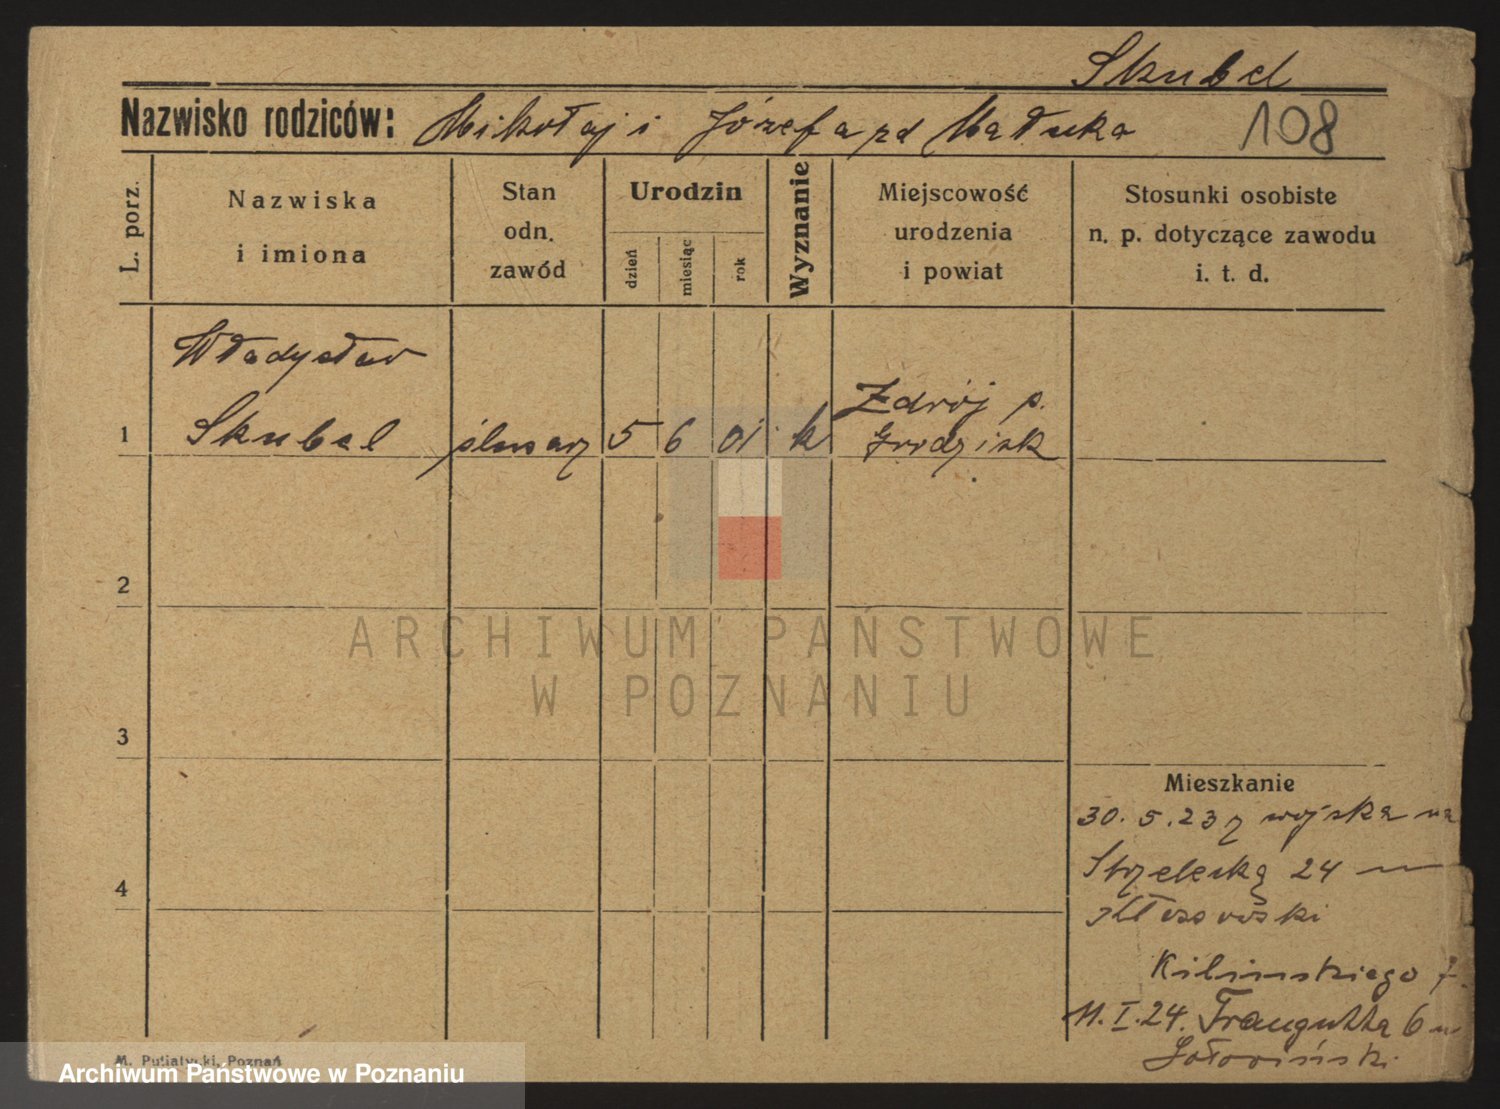 Skubel
Nazwisko rodziców: Mikołaj i Józefa zd Mątuka
108
L. porz.
Nazwiska
i imiona
Stan
odn.
zawód
Urodzin
dzień
miesiąc
rok
Wyznanie
Miejscowość
urodzenia
i powiat
Stosunki osobiste
n. p. dotyczące zawodu
i. t. d.
Władysław
1 Skubel ślusarz 5 6 01 k Zdrój p.
Grodzisk
2
3
4
Mieszkanie
30. 5. 23 z wojska na
Strzelecką 24
Kilińskiego 7.
11. I. 24. Traugutta 6
M. Putiatycki, Poznań
ARCHIWUM PAŃSTWOWE
W POZNANIU
Archiwum Państwowe w Poznaniu